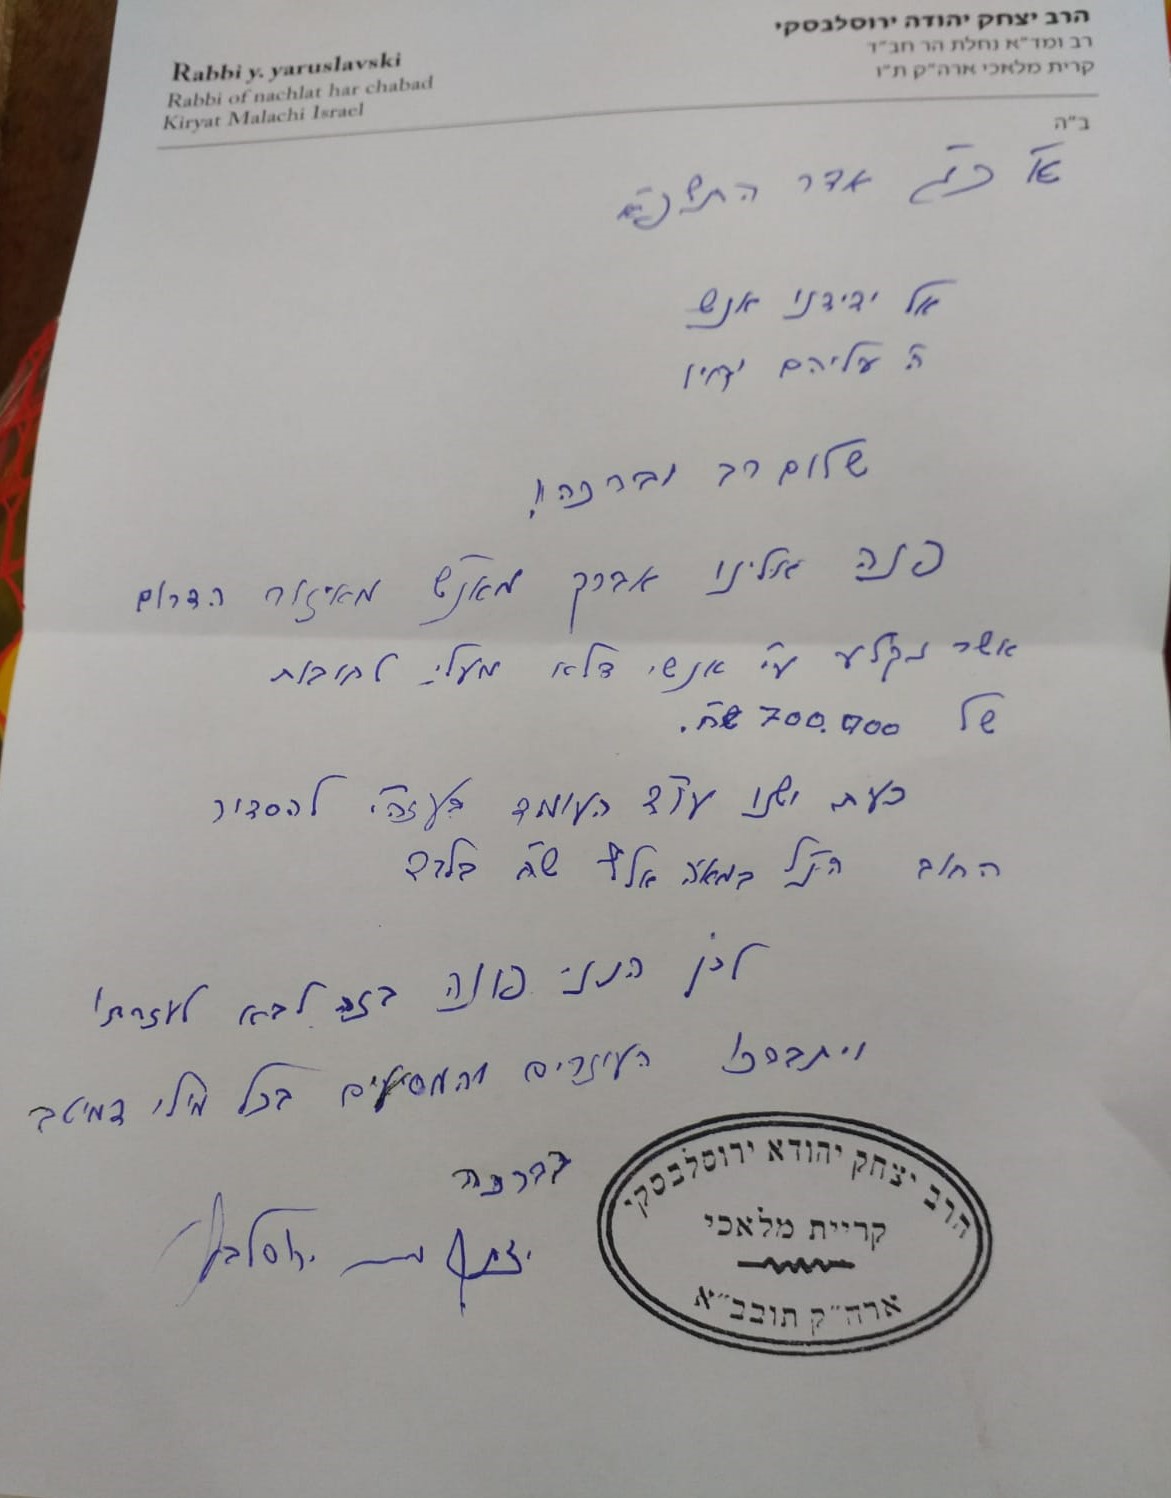 הרב יצחק יהודה ירוסלבסקי
רב ומד"א נחלת הר חב"ד
קרית מלאכי ארה"ק ת"ו
Rabbi y. yaruslavski
Rabbi of nachlat har chabad
Kiryat Malachi Israel
ב"ה
א' כ"ג אדר
אל ידידנו אנ"ש
ה' עליהם יחיו
שלום רב וברכה!
פנה אלינו אברך מאנ"ש מאיזור הדרום
אשר נקלע ע"י אנשי דלא מעלי לחובות
של 700.000 ש"ח.
כעת ישנו עו"ד העומד בעזהי"ת להסדיר
החוב הנ"ל במאה אלף ש"ח בלבד
לכן הנני פונה בזה לבא לעזרתו
ויתברכו העוזרים והמסייעים בכל מילי דמיטב
בברכה
יצחק ירוסלבסקי
הרב יצחק יהודא ירוסלבסקי
קריית מלאכי
ארה"ק תובב"א